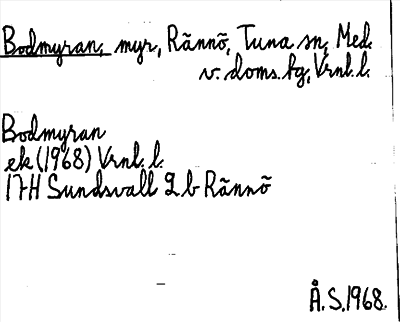 Bodmyran, myr, Rännö, Tuna sn, Med.
v. doms. hg, Vrnl. l.
Bodmyran
ek (1968) Vrnl. l.
17H Sundsvall 2 b Rännö
Å. S. 1968.